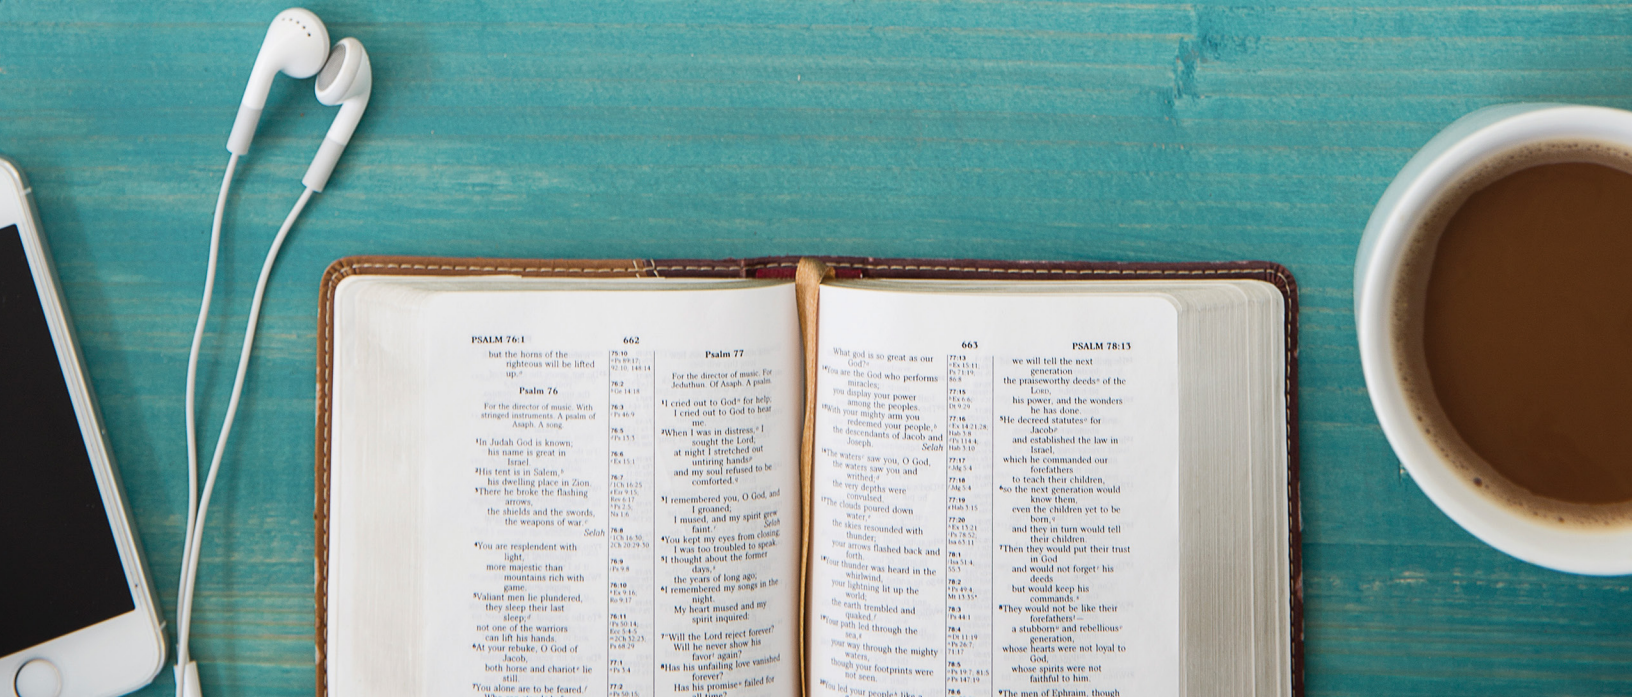 PSALM 76:1
662
but the horns of the
righteous will be lifted
up.
Psalm 76
For the director of music. With
stringed instruments. A psalm of
Asaph. A song.
¹In Judah God is known;
his name is great in
Israel.
²His tent is in Salem,
his dwelling place in Zion.
³There he broke the flashing
arrows,
the shields and the swords,
the weapons of war.
Selah
⁴You are resplendent with
light,
more majestic than
mountains rich with
game.
⁵Valiant men lie plundered,
they sleep their last
sleep;
not one of the warriors
can lift his hands.
⁶At your rebuke, O God of
Jacob,
both horse and chariot lie
still.
⁷You alone are to be feared.
75:10
76:2
76:3
76:5
76:6
76:7
76:8
76:9
76:10
76:11
77:1
77:2
Psalm 77
For the director of music. For
Jeduthun. Of Asaph. A psalm.
¹I cried out to God for help;
I cried out to God to hear
me.
²When I was in distress, I
sought the Lord;
at night I stretched out
untiring hands
and my soul refused to be
comforted.
³I remembered you, O God, and
I groaned;
I mused, and my spirit grew
faint. Selah
⁴You kept my eyes from closing;
I was too troubled to speak.
⁵I thought about the former
days,
the years of long ago;
⁶I remembered my songs in the
night.
My heart mused and my
spirit inquired:
⁷"Will the Lord reject forever?
Will he never show his
favor again?
⁸Has his unfailing love vanished
forever?
Has his promise failed for
all time?
663
PSALM 78:13
What god is so great as our
God?
¹⁴You are the God who performs
miracles;
you display your power
among the peoples.
¹⁵With your mighty arm you
redeemed your people,
the descendants of Jacob and
Joseph. Selah
¹⁶The waters saw you, O God,
the waters saw you and
writhed;
the very depths were
convulsed.
¹⁷The clouds poured down
water,
the skies resounded with
thunder;
your arrows flashed back and
forth.
¹⁸Your thunder was heard in the
whirlwind,
your lightning lit up the
world;
the earth trembled and
quaked.
¹⁹Your path led through the
sea,
your way through the mighty
waters,
though your footprints were
not seen.
²⁰You led your people like a
77:13
77:15
77:16
77:17
77:18
77:19
77:20
78:1
78:2
78:3
78:4
78:5
78:6
we will tell the next
generation
the praiseworthy deeds of the
LORD,
his power, and the wonders
he has done.
⁵He decreed statutes for
Jacob
and established the law in
Israel,
which he commanded our
forefathers
to teach their children,
⁶so the next generation would
know them,
even the children yet to be
born,
and they in turn would tell
their children.
⁷Then they would put their trust
in God
and would not forget his
deeds
but would keep his
commands.
⁸They would not be like their
forefathers—
a stubborn and rebellious
generation,
whose hearts were not loyal to
God,
whose spirits were not
faithful to him.
⁹The men of Ephraim, though